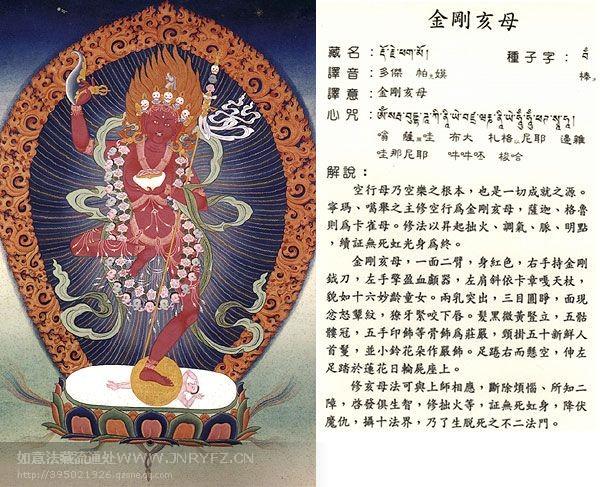 金剛亥母
藏名：རྡོ་རྗེ་ཕག་མོ། 種子字：
譯音：多傑 帕 嫫 棒
譯意：金剛亥母
心咒：
嗡 薩 哇 布大 札格 尼耶 邊雜
哇那尼耶 吽吽呸 梭哈
解說：
空行母乃空樂之根本，也是一切成就之源。
寧瑪、噶舉之主修空行爲金剛亥母，薩迦、格魯
則爲卡雀母。修法以昇起拙火、調氣、脈、明點
，續証無死虹光身爲終。
金剛亥母，一面二臂，身紅色，右手持金剛
鉞刀，左手擎盈血顱器，左肩斜依卡章嘎天杖，
貌如十六妙齡童女。兩乳突出，三目圓睜，面現
忿怒顰紋，獠牙緊咬下唇。髮黑微黃豎立，五骷
髏冠，五手印飾等骨飾爲莊嚴，頸掛五十新鮮人
首鬘，並小鈴花朵作嚴飾。右足踡而懸空，伸左
足踏於蓮花日輪屍座上。
修亥母法可與上師相應，斷除煩惱、所知二
障，啓發俱生智，修拙火等，証無死虹身，降伏
魔仇，攝十法界，乃了生脫死之不二法門。
如意法藏流通处WWW.JNRYFZ.CN
http://395021926.qzone.qq.com